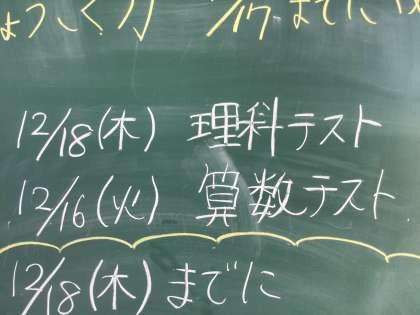 ょっこく 1/17までに
12/18(木) 理科テスト
12/16(火) 算数テスト
12/18(木)までに